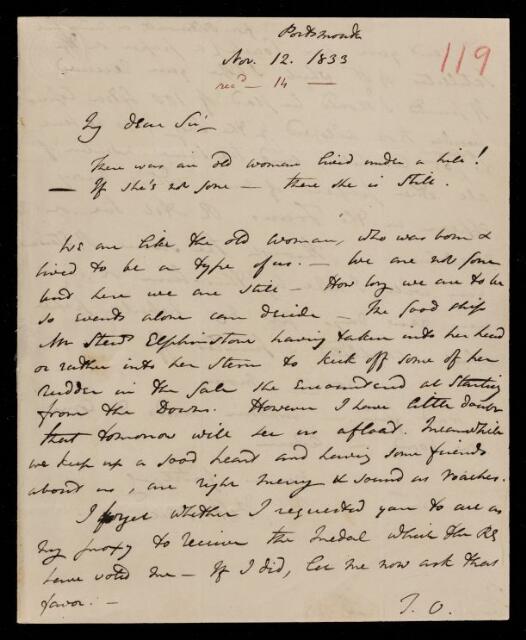 Portsmouth
Nov. 12. 1833
recd - 14 -
119
My dear Sir -
There was an old woman lived under a hill!
- If she's not gone - there she is still.
We are like the old woman, who was born &
lived to be a type of us. - We are not gone
but here we are still - How long we are to be
so events alone can decide - The good ship
Mt Stewt Elphinstone having taken into her head
or rather into her stern to kick off some of her
rudder in the gale she encountered at starting
from the Downs. However I have little doubt
that tomorrow will see us afloat. Meanwhile
we keep up a good heart and having some friends
about us, are right merry & sound as roaches.
I forget whether I requested you to act as
my proxy to receive the medal which the RS
have voted me - If I did, let me now ask that
favor. -
T. O.